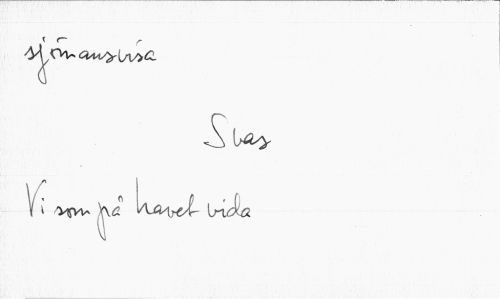 sjömansvisa
Svas
Vi som på havet vida